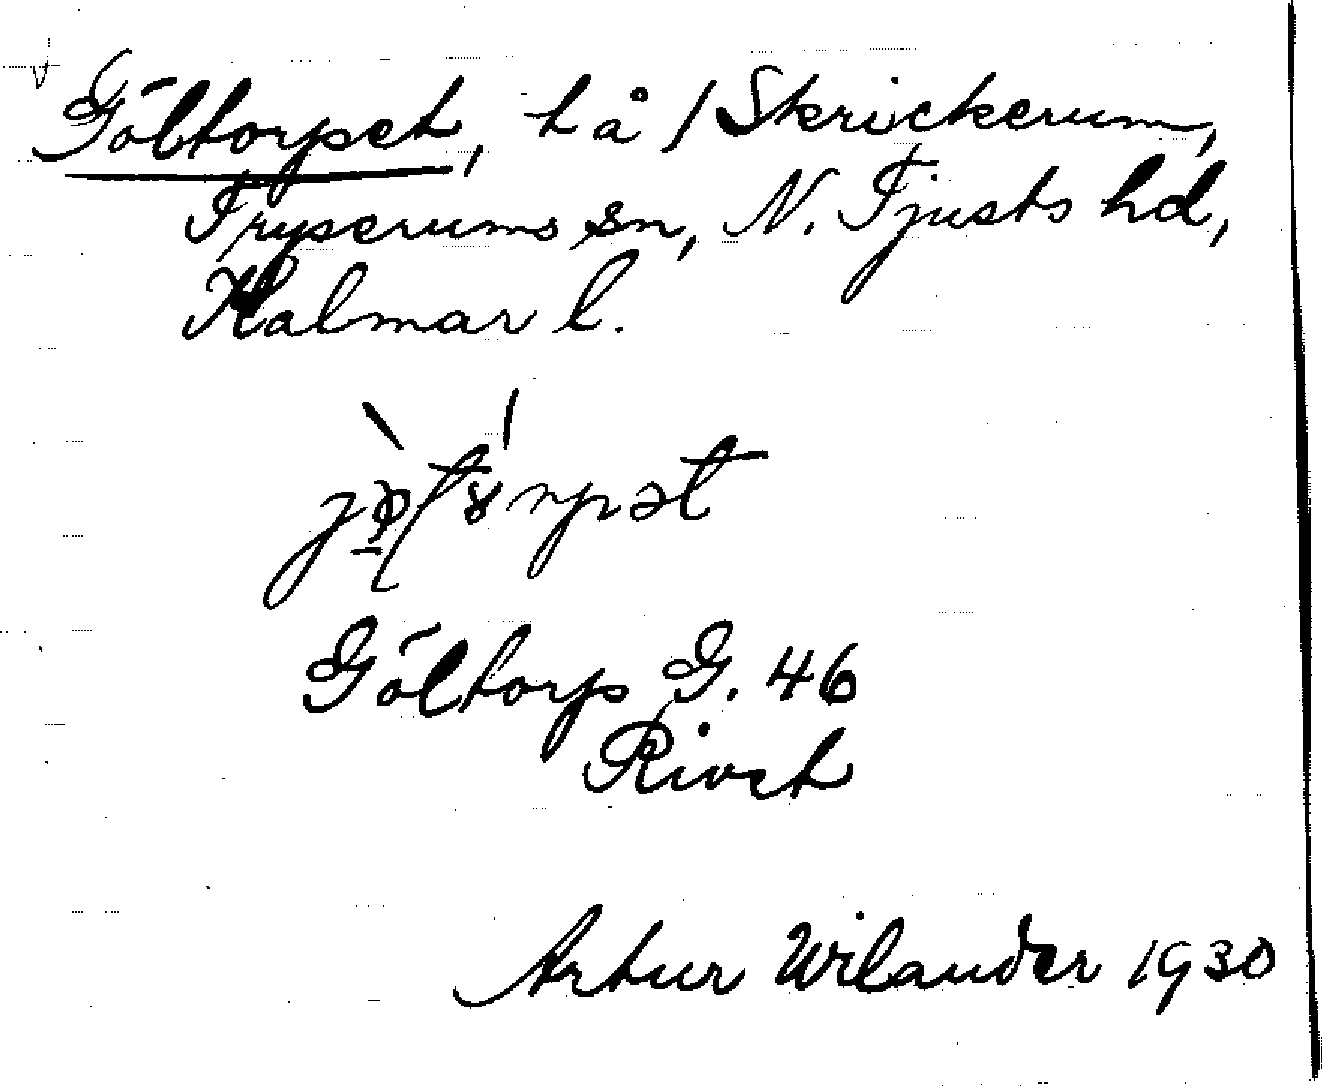 Göltorpet, t å / Skrickerum,
Tryserums sn, N. Tjusts hd,
Kalmar l.
Göltorp G. 46
Rivet
Artur Wilander 1930